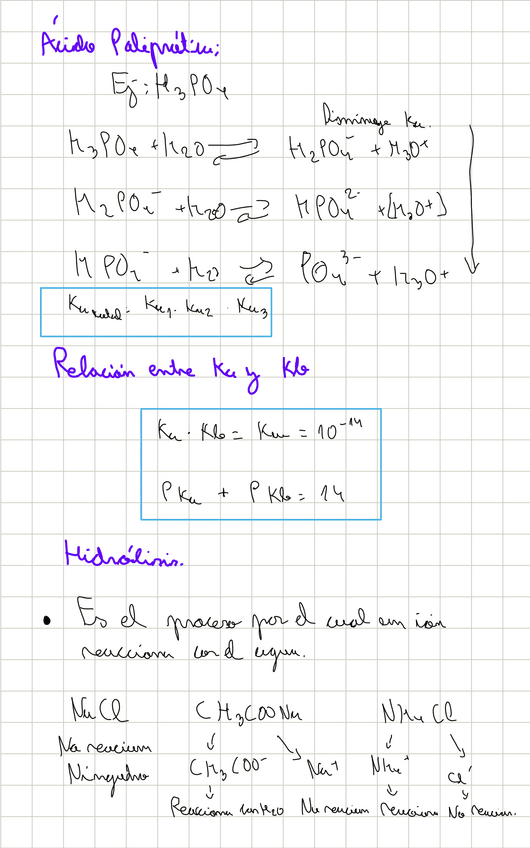 Ácido Poliprótico:
Ej: H₃PO₄
Disminuye Ka.
H₃PO₄ + H₂O ⇌ H₂PO₄⁻ + H₃O⁺
H₂PO₄⁻ + H₂O ⇌ HPO₄²⁻ + [H₃O+]
HPO₄⁻ + H₂O ⇌ PO₄³⁻ + H₃O+
Ka total = Ka₁ · Ka₂ · Ka₃
Relación entre Ka y Kb
Ka · Kb = Kw = 10⁻¹⁴
PKa + PKb = 14
Hidrólisis.
• Es el proceso por el cual un ión
reacciona con el agua.
NaCl CH₃COONa NH₄Cl
No reacciona
Ninguno
CH₃COO⁻ Na⁺ NH₄⁺ Cl⁻
Reacciona con H₂O No reacciona Reacciona No reacciona.